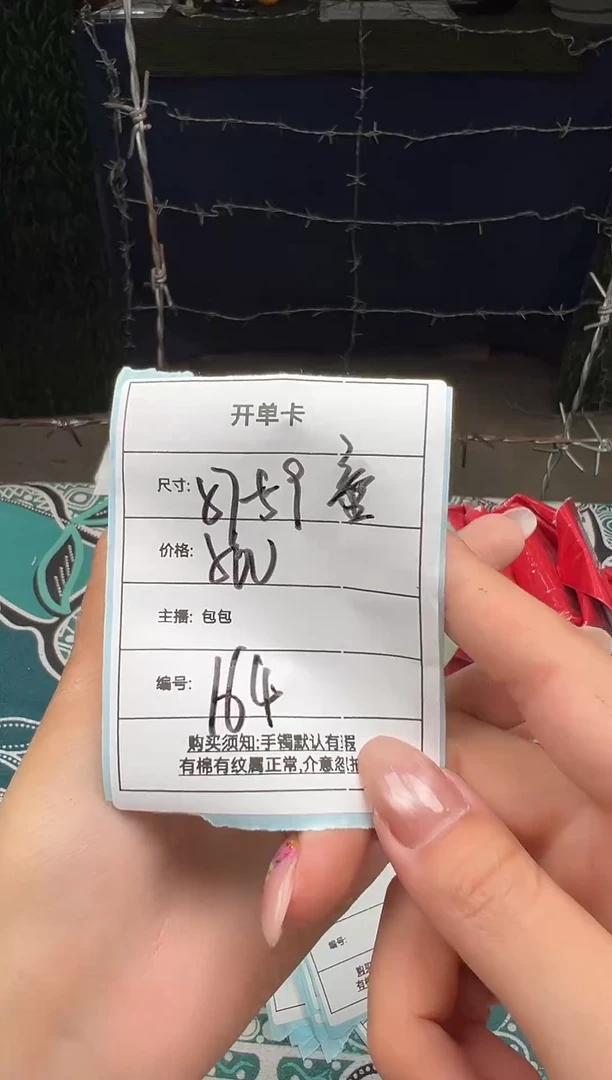 开单卡
尺寸: 8759
价格: 800
主播: 包包
编号: 164
购买须知:手镯默认有瑕
有棉有纹属正常,介意勿拍
编号: